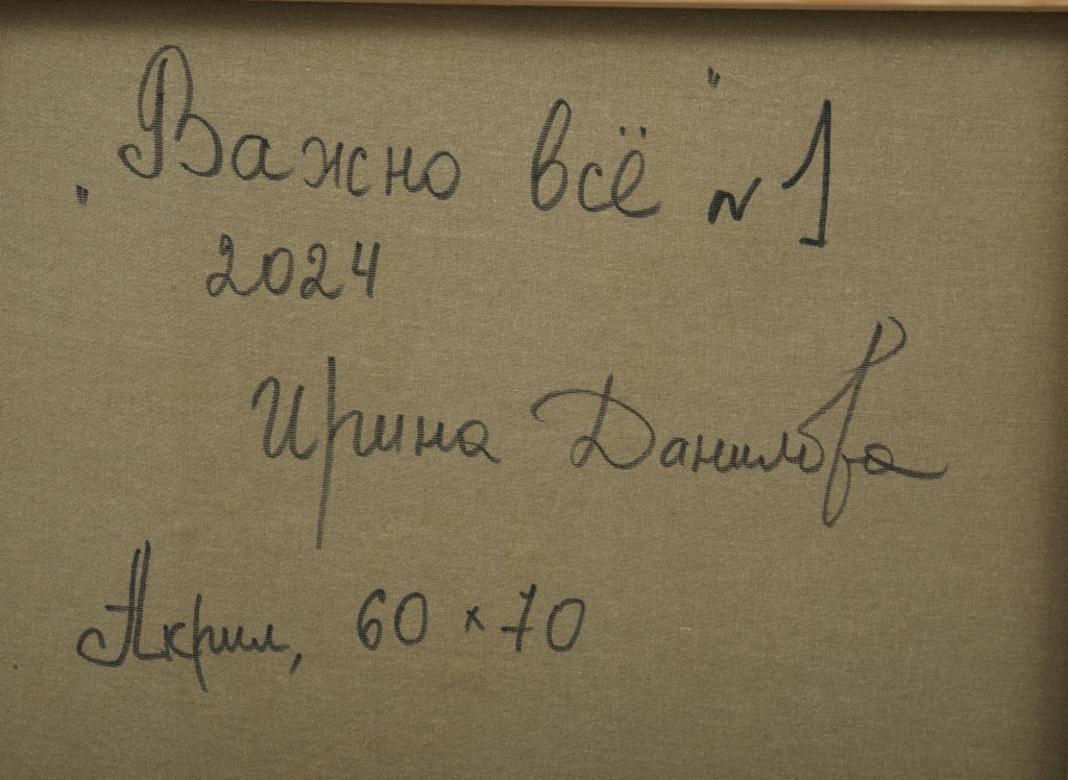 "Важно всё" N 1
2024
Ирина Данилова
Акрил, 60 × 70